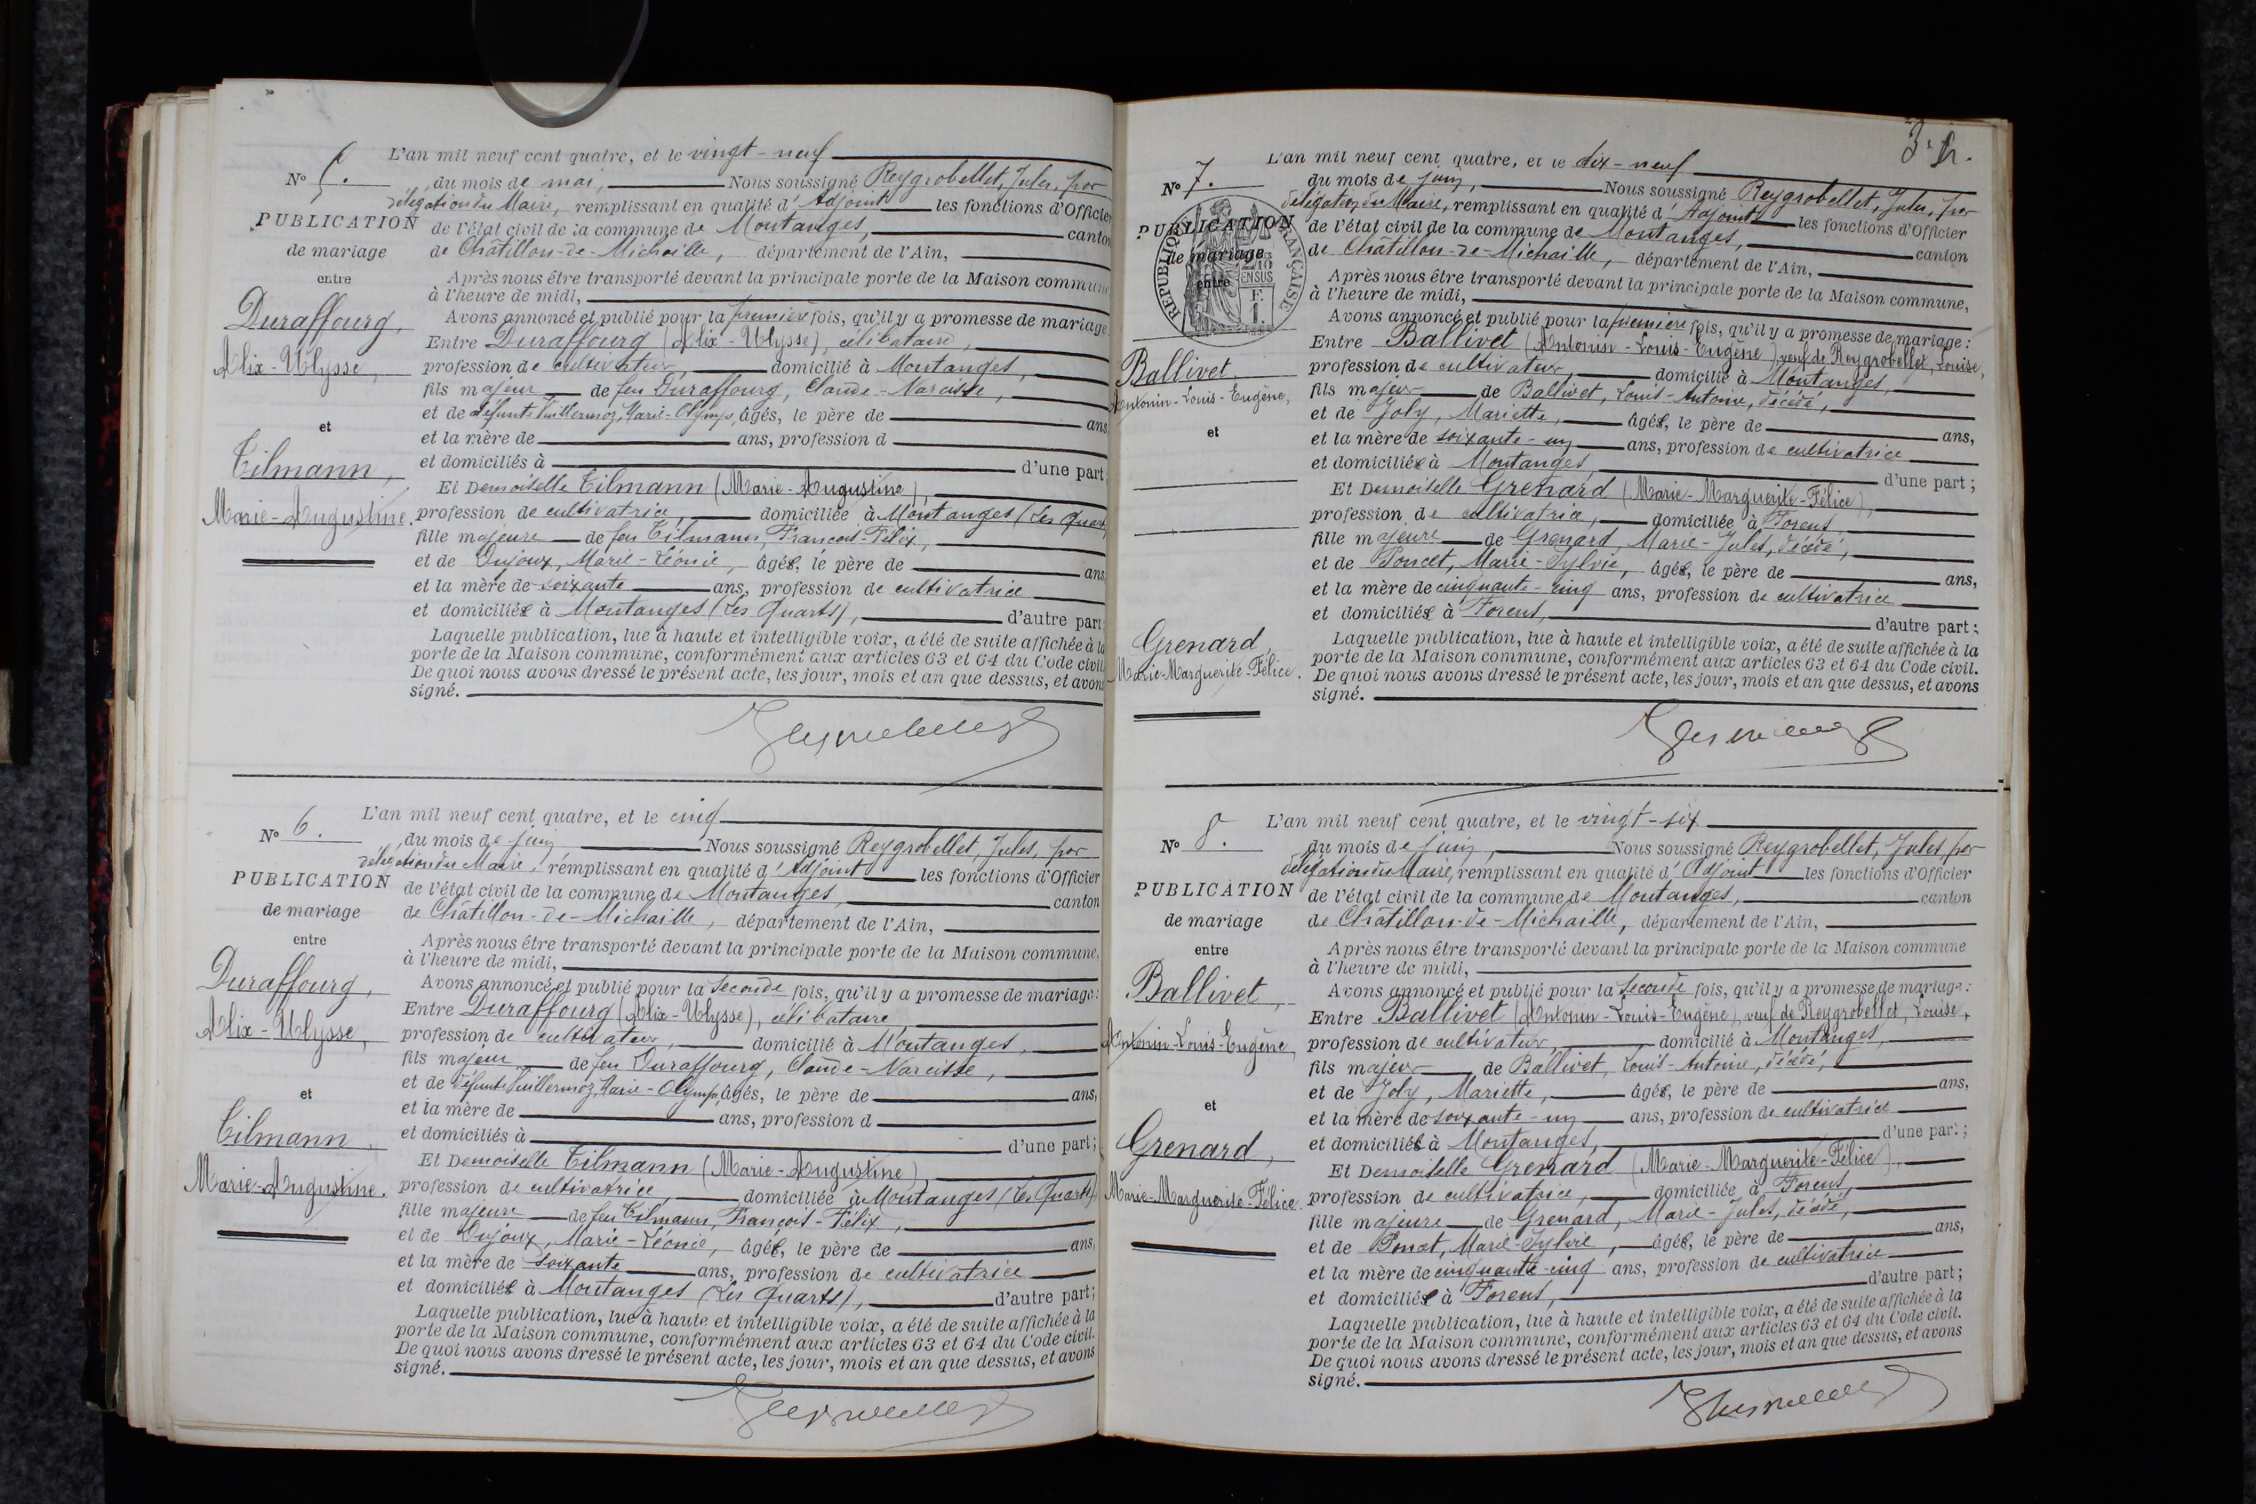 L'an mil neuf cent quatre, et le vingt-neuf
N° 5.
du mois de mai, Nous soussigné Reygrobellet, Jules, par
délégation du Maire, remplissant en qualité d'Adjoint les fonctions d'Officier
PUBLICATION
de l'état civil de la commune de Montanges, canton
de mariage
de Châtillon-de-Michaille, département de l'Ain,
entre
Après nous être transporté devant la principale porte de la Maison commune
à l'heure de midi,
Duraffourg,
Avons annoncé et publié pour la première fois, qu'il y a promesse de mariage
Entre Duraffourg (Alix-Ulysse), célibataire,
Alix-Ulysse,
profession de cultivateur, domicilié à Montanges,
fils majeur de feu Duraffourg, Claude-Narcisse,
et de défunte Vuillermoz, Marie-Olympe, âgés, le père de ans
et
et la mère de ans, profession d
et domiciliés à d'une part
Tilmann,
Et Demoiselle Tilmann (Marie-Augustine),
Marie-Augustine.
profession de cultivatrice, domiciliée à Montanges (Les Quarts
fille majeure de feu Tilmann, François-Félix,
et de Dujoux, Marie-Léonie, âgés, le père de ans
et la mère de soixante ans, profession de cultivatrice
et domiciliés à Montanges (Les Quarts), d'autre part;
Laquelle publication, lue à haute et intelligible voix, a été de suite affichée à la
porte de la Maison commune, conformément aux articles 63 et 64 du Code civil
De quoi nous avons dressé le présent acte, les jour, mois et an que dessus, et avons
signé.
L'an mil neuf cent quatre, et le cinq
N° 6.
du mois de juin Nous soussigné Reygrobellet, Jules, par
délégation du Maire, remplissant en qualité d'Adjoint les fonctions d'Officier
PUBLICATION
de l'état civil de la commune de Montanges, canton
de mariage
de Châtillon-de-Michaille, département de l'Ain,
entre
Après nous être transporté devant la principale porte de la Maison commune,
à l'heure de midi,
Duraffourg,
Avons annoncé et publié pour la seconde fois, qu'il y a promesse de mariage:
Entre Duraffourg (Alix-Ulysse), célibataire
Alix-Ulysse,
profession de cultivateur, domicilié à Montanges,
fils majeur de feu Duraffourg, Claude-Narcisse,
et de défunte Vuillermoz, Marie-Olympe, âgés, le père de ans,
et
et la mère de ans, profession d
et domiciliés à d'une part;
Tilmann,
Et Demoiselle Tilmann (Marie-Augustine)
Marie-Augustine.
profession de cultivatrice, domiciliée à Montanges (Les Quarts)
fille majeure de feu Tilmann, François-Félix,
et de Dujoux, Marie-Léonie, âgés, le père de ans,
et la mère de soixante ans, profession de cultivatrice
et domiciliés à Montanges (Les Quarts), d'autre part;
Laquelle publication, lue à haute et intelligible voix, a été de suite affichée à la
porte de la Maison commune, conformément aux articles 63 et 64 du Code civil.
De quoi nous avons dressé le présent acte, les jour, mois et an que dessus, et avons
signé.
L'an mil neuf cent quatre, et le dix-neuf
N° 7.
du mois de juin, Nous soussigné Reygrobellet, Jules, par
délégation du Maire, remplissant en qualité d'Adjoint les fonctions d'Officier
PUBLICATION
RÉPUBLIQUE FRANÇAISE
de l'état civil de la commune de Montanges, canton
de mariage
de Châtillon-de-Michaille, département de l'Ain,
entre
Après nous être transporté devant la principale porte de la Maison commune,
à l'heure de midi,
Avons annoncé et publié pour la première fois, qu'il y a promesse de mariage:
Entre Ballivet (Antonin-Louis-Eugène), veuf de Reygrobellet, Louise,
Ballivet
profession de cultivateur, domicilié à Montanges,
Antonin-Louis-Eugène,
fils majeur de Ballivet, Louis-Antoine, décédé,
et de Joly, Mariette, âgés, le père de ans,
et
et la mère de soixante-un ans, profession de cultivatrice
et domiciliés à Montanges, d'une part;
Et Demoiselle Grenard (Marie-Marguerite-Félice),
profession de cultivatrice, domiciliée à Forens,
fille majeure de Grenard, Marie-Jules, décédé,
et de Poncet, Marie-Sylvie, âgés, le père de ans,
et la mère de cinquante-cinq ans, profession de cultivatrice
et domiciliés à Forens, d'autre part;
Grenard,
Marie-Marguerite-Félice.
Laquelle publication, lue à haute et intelligible voix, a été de suite affichée à la
porte de la Maison commune, conformément aux articles 63 et 64 du Code civil.
De quoi nous avons dressé le présent acte, les jour, mois et an que dessus, et avons
signé.
L'an mil neuf cent quatre, et le vingt-six
N° 8.
du mois de juin, Nous soussigné Reygrobellet, Jules, par
délégation du Maire, remplissant en qualité d'Adjoint les fonctions d'Officier
PUBLICATION
de l'état civil de la commune de Montanges, canton
de mariage
de Châtillon-de-Michaille, département de l'Ain,
entre
Après nous être transporté devant la principale porte de la Maison commune
à l'heure de midi,
Ballivet,
Avons annoncé et publié pour la seconde fois, qu'il y a promesse de mariage:
Entre Ballivet (Antonin-Louis-Eugène), veuf de Reygrobellet, Louise,
Antonin-Louis-Eugène,
profession de cultivateur, domicilié à Montanges,
fils majeur de Ballivet, Louis-Antoine, décédé,
et de Joly, Mariette, âgés, le père de ans,
et
et la mère de soixante-un ans, profession de cultivatrice
et domiciliés à Montanges, d'une part;
Grenard,
Et Demoiselle Grenard (Marie-Marguerite-Félice),
Marie-Marguerite-Félice.
profession de cultivatrice, domiciliée à Forens,
fille majeure de Grenard, Marie-Jules, décédé,
et de Poncet, Marie-Sylvie, âgés, le père de ans,
et la mère de cinquante-cinq ans, profession de cultivatrice
et domiciliés à Forens, d'autre part;
Laquelle publication, lue à haute et intelligible voix, a été de suite affichée à la
porte de la Maison commune, conformément aux articles 63 et 64 du Code civil.
De quoi nous avons dressé le présent acte, les jour, mois et an que dessus, et avons
signé.